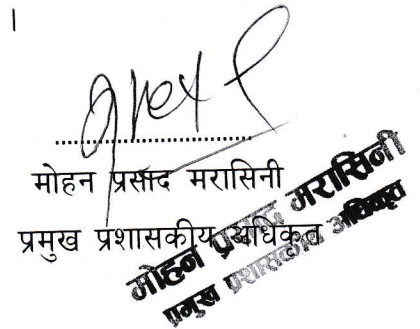 मोहन प्रसाद मरासिनी
प्रमुख प्रशासकीय अधिकृत
मोहन प्रसाद मरासिनी
प्रमुख प्रशासकीय अधिकृत